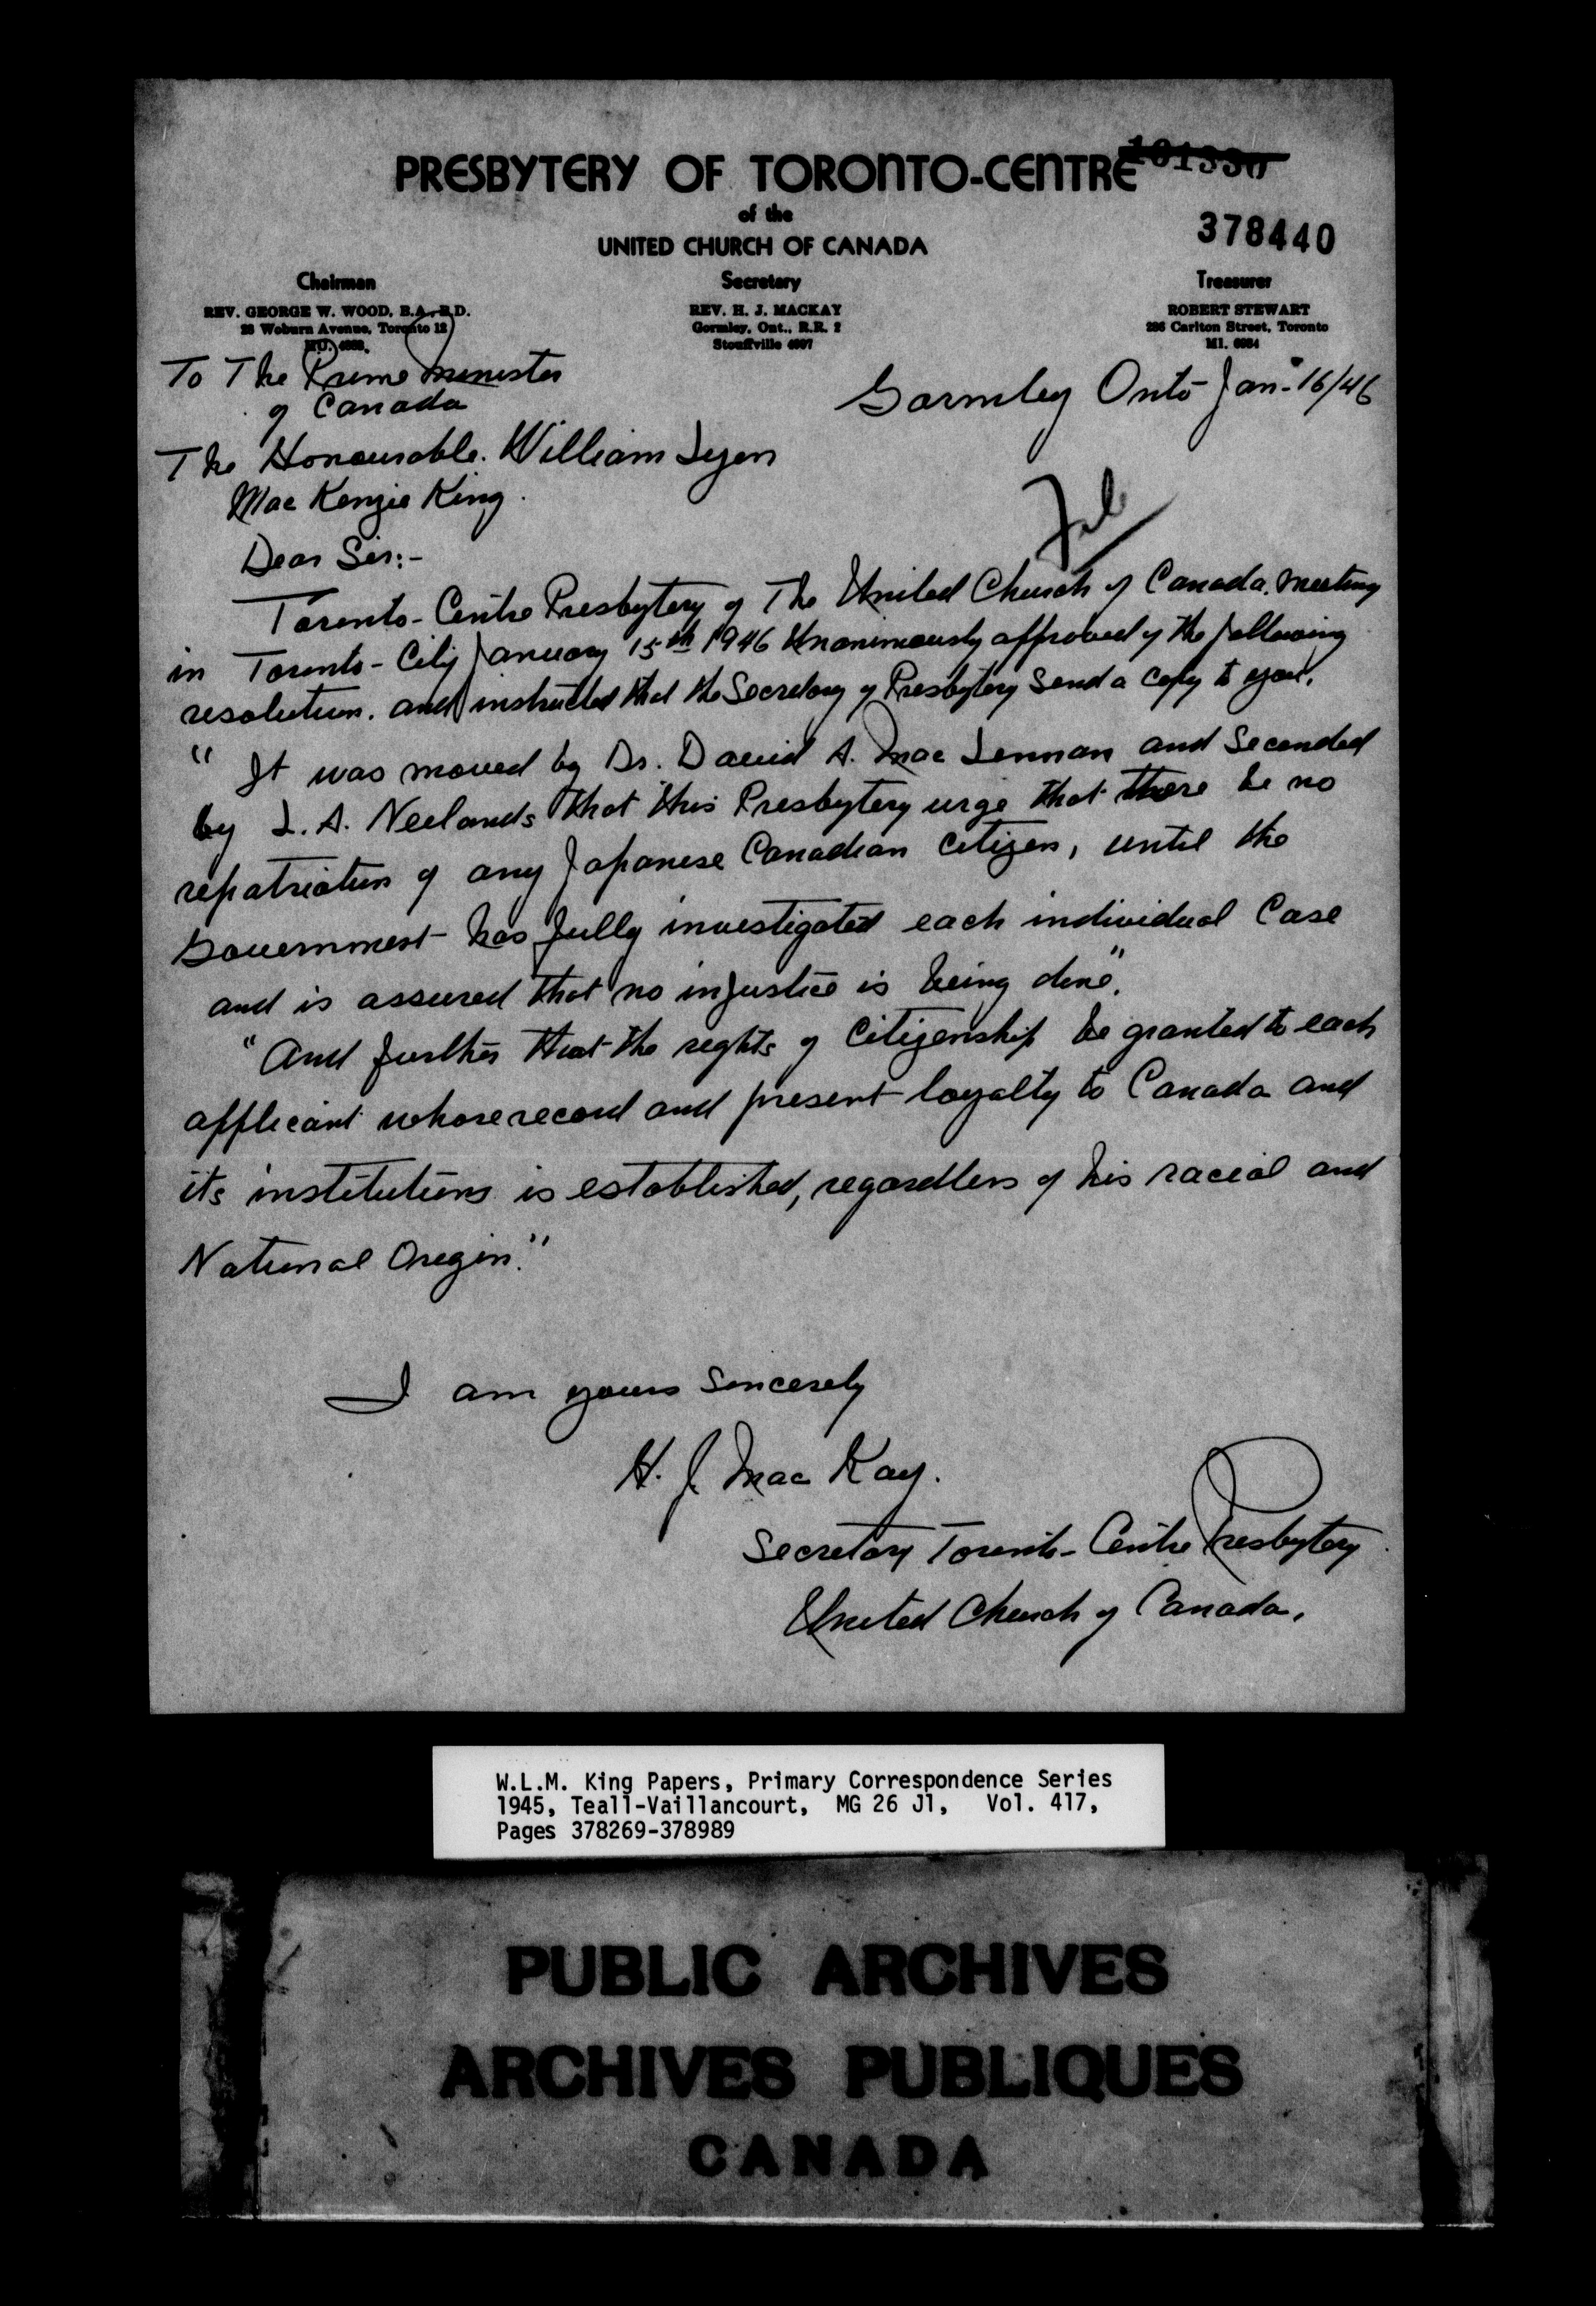 101330
PRESBYTERY OF TORONTO-CENTRE
of the
378440
UNITED CHURCH OF CANADA
Chairman
REV. GEORGE W. WOOD, B.A., B.D.
28 Woburn Avenue, Toronto 12
Secretary
REV. H. J. MACKAY
Gormley, Ont., R.R. 2
Stouffville 4907
Treasurer
ROBERT STEWART
286 Carlton Street, Toronto
To The Prime Minister
of Canada
Gormley Onto Jan. 16/46
The Honourable. William Lyon
MacKenzie King.
Dear Sir:-
Toronto-Centre Presbytery of The United Church of Canada. Meeting
in Toronto-City January 15th 1946 Unanimously approved of the following
resolution. and instructed that the Secretary of Presbytery Send a Copy to you.
" It was moved by Dr. David A. MacLennan and Seconded
by L. A. Neelands that this Presbytery urge that there be no
repatriation of any Japanese Canadian Citizen, until the
Government has fully investigated each individual Case
and is assured that no injustice is being done".
"And further that the rights of Citizenship be granted to each
applicant whose record and present loyalty to Canada and
its institutions is established, regardless of his racial and
National Origin."
I am yours Sincerely
H. J. MacKay.
Secretary Toronto-Centre Presbytery
United Church of Canada.
W.L.M. King Papers, Primary Correspondence Series
1945, Teall-Vaillancourt, MG 26 J1, Vol. 417,
Pages 378269-378989
PUBLIC ARCHIVES
ARCHIVES PUBLIQUES
CANADA